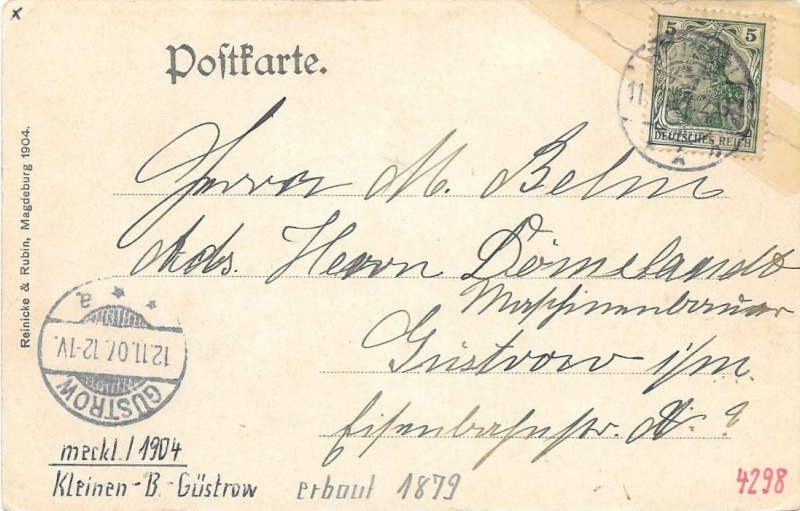 x
Postkarte.
5 5
DEUTSCHES REICH
11.
Herrn M. Behn
Ads. Herrn Dömelandt
Maschinenbauer
Güstrow i/m.
Eisenbahnstr. N.
Reinicke & Rubin, Magdeburg 1904.
a
12.11.07.12-1V.
GÜSTROW
meckl./1904
Kleinen-B.-Güstrow erbaut 1879
4298